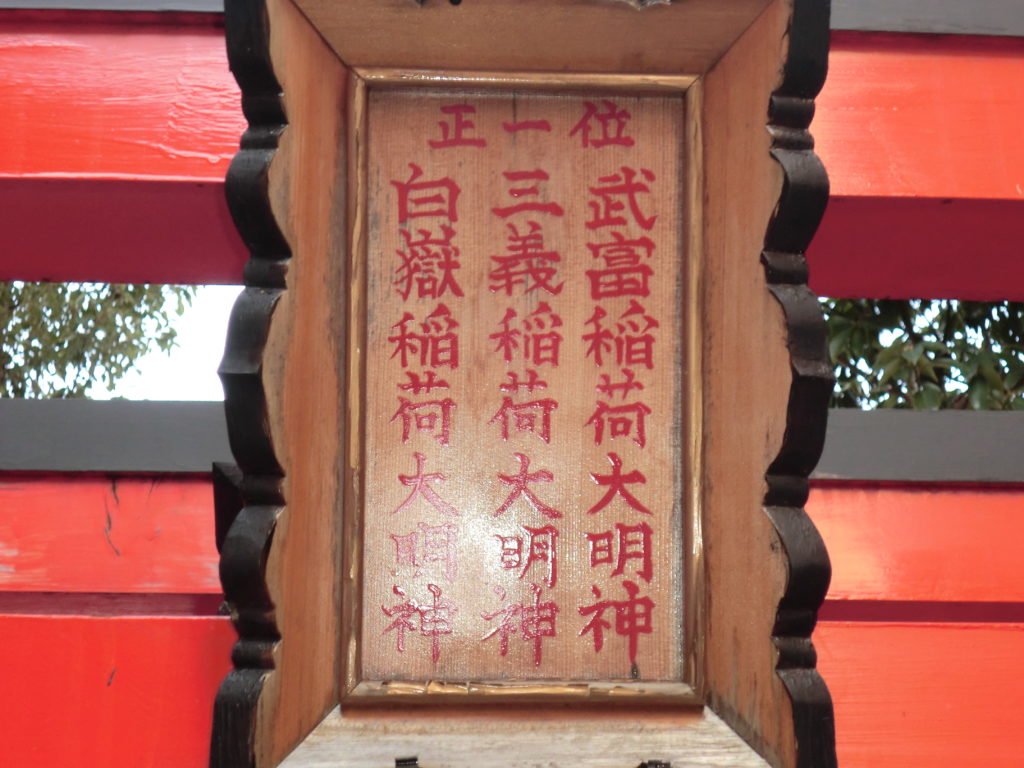 正一位
武富稲荷大明神
三義稲荷大明神
白嶽稲荷大明神